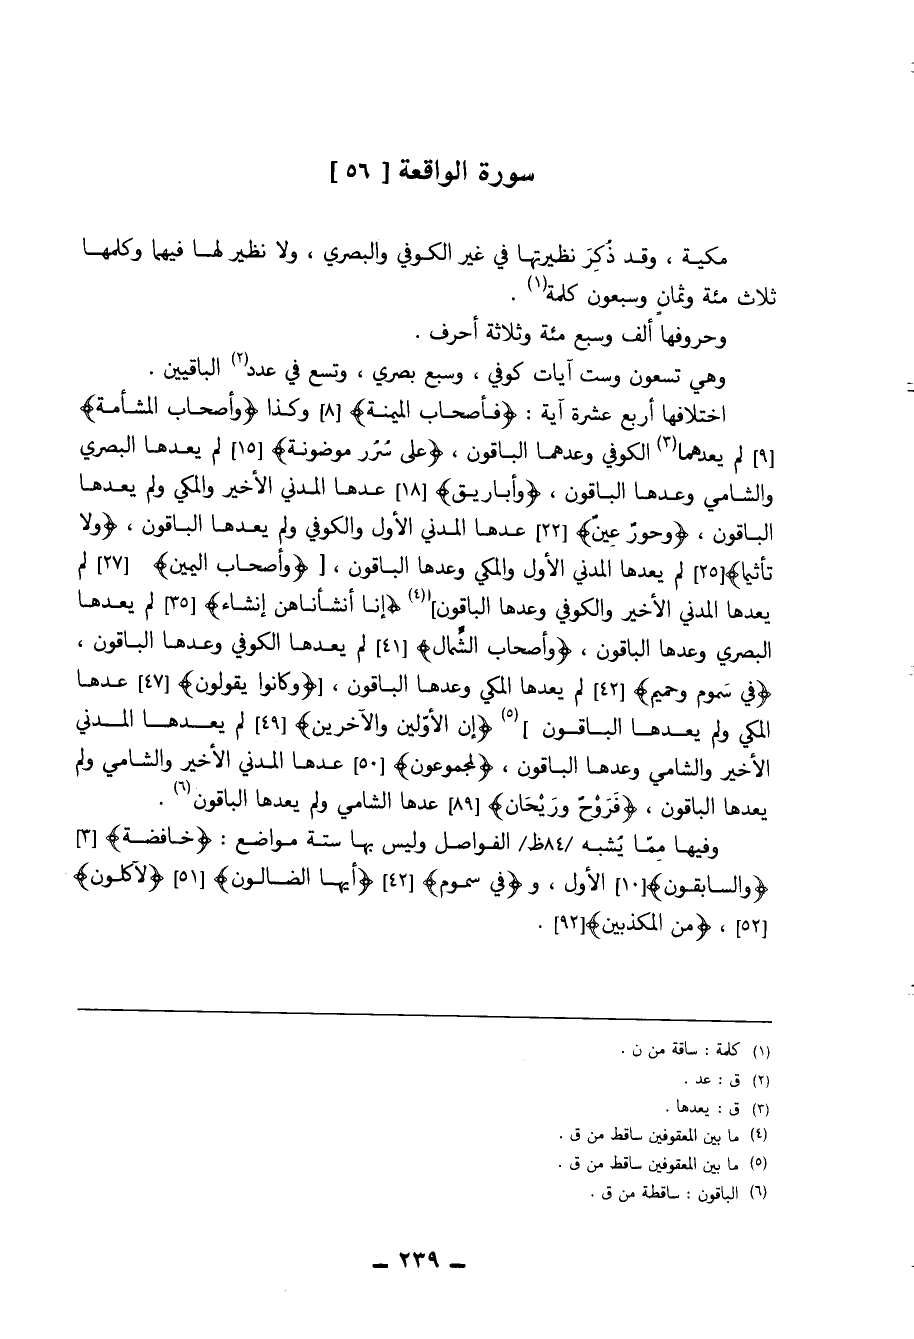 سورة الواقعة [ ٥٦ ]
مكية ، وقد ذُكِرَ نظيرتها في غير الكوفي والبصري ، ولا نظير لها فيها وكلمها
ثلاث مئة وثمانٍ وسبعون كلمة(١) .
وحروفها ألف وسبع مئة وثلاثة أحرف .
وهي تسعون وست آيات كوفي ، وسبع بصري ، وتسع في عدد(٢) الباقيين .
اختلافها أربع عشرة آية : ﴿فأصحاب الميمنة﴾ [٨] وكذا ﴿وأصحاب المشأمة﴾
[٩] لم يعدهما(٣) الكوفي وعدهما الباقون ، ﴿على سُرُر موضونة﴾ [١٥] لم يعدها البصري
والشامي وعدها الباقون ، ﴿وأباريق﴾ [١٨] عدها المدني الأخير والمكي ولم يعدها
الباقون ، ﴿وحورٌ عِينٌ﴾ [٢٢] عدها المدني الأول والكوفي ولم يعدها الباقون ، ﴿ولا
تأثيما﴾[٢٥] لم يعدها المدني الأول والمكي وعدها الباقون ، [ ﴿وأصحاب اليمين﴾ [٢٧] لم
يعدها المدني الأخير والكوفي وعدها الباقون](٤) ﴿إنا أنشأناهن إنشاء﴾ [٣٥] لم يعدها
البصري وعدها الباقون ، ﴿وأصحاب الشِّمال﴾ [٤١] لم يعدها الكوفي وعدها الباقون ،
﴿في سَموم وحميم﴾ [٤٢] لم يعدها المكي وعدها الباقون ، [﴿وكانوا يقولون﴾ [٤٧] عدها
المكي ولم يعدها الباقون ](٥) ﴿إن الأوّلين والآخرين﴾ [٤٩] لم يعدها المدني
الأخير والشامي وعدها الباقون ، ﴿لمجموعون﴾ [٥٠] عدها المدني الأخير والشامي ولم
يعدها الباقون ، ﴿فَرَوْحٌ ورَيْحَان﴾ [٨٩] عدها الشامي ولم يعدها الباقون(٦) .
وفيها ممّا يُشبه /٨٤ظ/ الفواصل وليس بها ستة مواضع : ﴿خافضة﴾ [٣]
﴿والسابقون﴾[١٠] الأول ، و ﴿في سموم﴾ [٤٢] ﴿أيها الضالون﴾ [٥١] ﴿لآكلون﴾
[٥٢] ، ﴿من المكذبين﴾[٩٢] .
(١) كلمة : ساقة من ن .
(٢) ق : عد .
(٣) ق : يعدها .
(٤) ما بين المعقوفين ساقط من ق .
(٥) ما بين المعقوفين ساقط من ق .
(٦) الباقون : ساقطة من ق .
ـ ٢٣٩ ـ